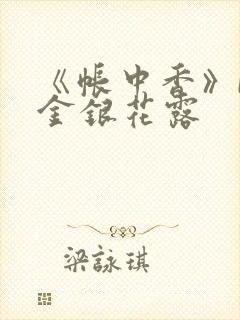 《帳中香》
金銀花露
梁詠琪